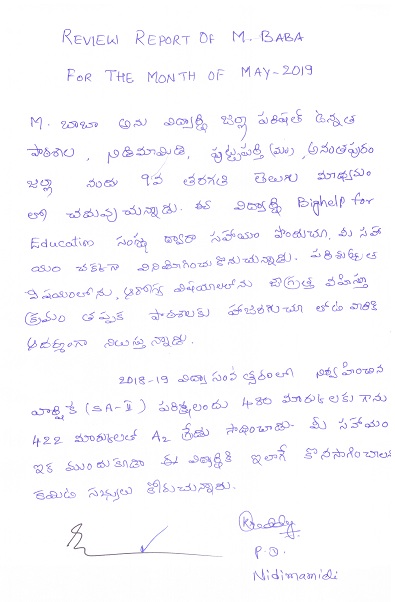 REVIEW REPORT OF M. BABA
FOR THE MONTH OF MAY-2019
M. బాబా అను విద్యార్థి జిల్లా పరిషత్ ఉన్నత
పాఠశాల, నిడిమామిడి, పుట్టపర్తి (మం), అనంతపురం
జిల్లా నందు 9వ తరగతి తెలుగు మాధ్యమం
లో చదువుచున్నాడు. ఈ విద్యార్థి Bighelp for
Education సంస్థ ద్వారా సహాయం పొందుచూ, మీ సహా
యం చక్కగా వినియోగించుకొనుచున్నాడు. పరిశుభ్రత
విషయంలోను, ఆరోగ్య విషయాలలోను జాగ్రత్త వహిస్తూ
క్రమం తప్పక పాఠశాలకు హాజరగుచూ తోటి వారికి
ఆదర్శంగా నిలుస్తున్నాడు.
2018-19 విద్యా సంవత్సరంలో నిర్వహించిన
వార్షిక (SA-II) పరీక్షలందు 480 మార్కులకు గాను
422 మార్కులతో A2 గ్రేడు సాధించాడు. మీ సహాయం
ఇక ముందుకూడా ఈ విద్యార్థికి ఇలాగే కొనసాగించాలని
కమిటి సభ్యులు కోరుచున్నారు.
P.O.
Nidimamidi